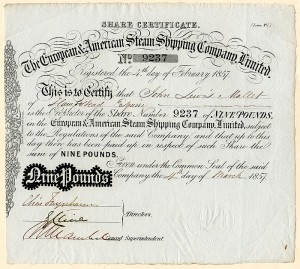 SHARE CERTIFICATE.
The European & American Steam Shipping Company, Limited.
No 9237
Registered the 4th day of February 1857.
This is to Certify that John Lewis Mallet
of
is the Proprietor of the Share Number 9237 of NINE POUNDS,
in the EUROPEAN & AMERICAN STEAM SHIPPING COMPANY, LIMITED, subject
to the Regulations of the said Company and that up to this
day there has been paid up in respect of such Share the
sum of NINE POUNDS.
Given under the Common Seal of the said
Nine Pounds.
Company, the day of March 1857
Directors.
Superintendent.